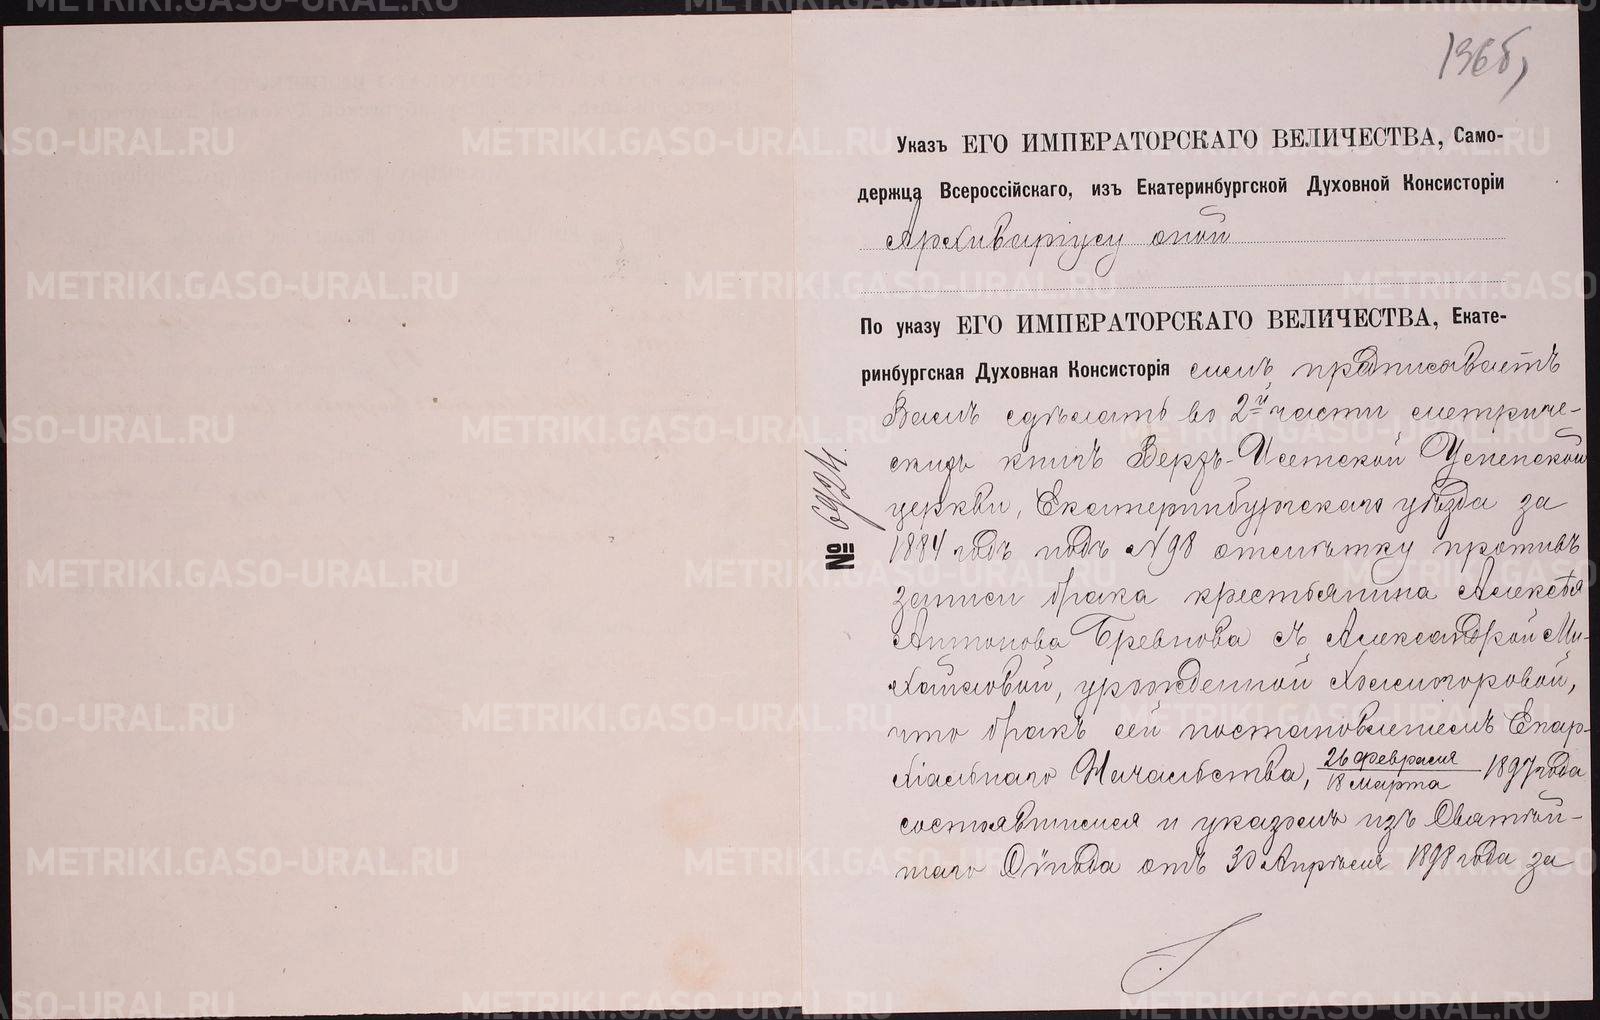 136б,
Указъ ЕГО ИМПЕРАТОРСКАГО ВЕЛИЧЕСТВА, Само-
держца Всероссійскаго, изъ Екатеринбургской Духовной Консисторіи
Архиваріусу оной
По указу ЕГО ИМПЕРАТОРСКАГО ВЕЛИЧЕСТВА, Екате-
ринбургская Духовная Консисторія симъ предписываетъ
Вамъ сдѣлать во 2й части метриче-
скихъ книгъ Верхъ-Исетской Успенской
церкви, Екатеринбургскаго уѣзда за
1884 годъ подъ №98 отмѣтку противъ
записи брака крестьянина Алексѣя
Антонова Бревнова съ Александрой Ми-
хайловой, урожденной Холмогоровой,
что бракъ сей постановленіемъ Епар-
хіальнаго Начальства, 26 февраля
18 марта 1897 года
состоявшимся и указомъ изъ Святѣй-
шаго Сѵнода отъ 30 Апрѣля 1898 года за
№ 6924.
METRIKI.GASO-URAL.RU